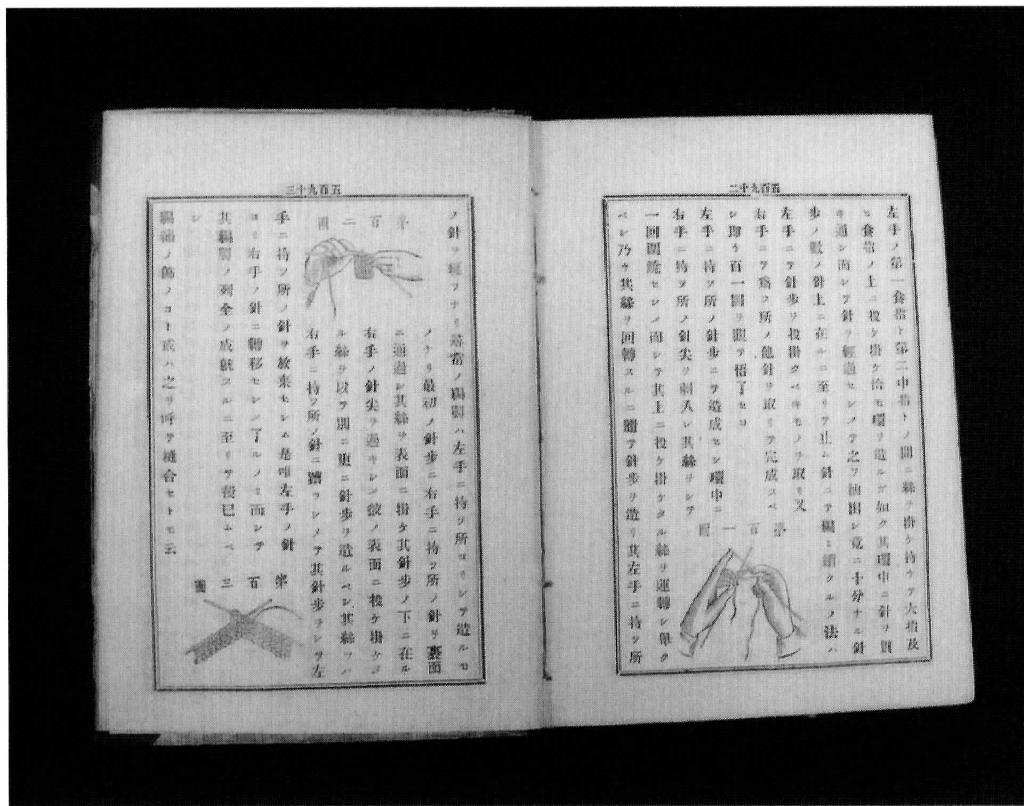 五百九十二
左手ノ第一食指ト第二中指トノ間ニ絲ヲ掛ケ持チテ大指及
ヒ食指ノ上ニ投ケ掛ケ恰モ環リ造ルガ如ク其環中ニ針ヲ
キ通シ而シテ針ヲ經過セシメテ之ヲ抽出シ竟ニ十分ナル針
歩ノ數ノ針上ニ在ルニ至リテ止ム針ニテ編ミ續クルノ法ハ
左手ニテ針歩ヲ投掛クベキモノヲ取リ又
右手ニテ爲ス所ノ他針ヲ取リテ完成スベ
シ即チ百一圖ヲ照ヲ悟了セヨ
左手ニ持ツ所ノ針歩ニテ造成セシ環中ニ
右手ニ持ツ所ノ針尖ヲ刺入シ其絲ヲシテ
一回圍繞セシメ而シテ其上ニ投ケ掛ケタル絲ヲ運轉シ
ベシ乃チ其絲ヲ回轉スルニ體テ針歩ヲ造リ其左手ニ持ツ所
第百一圖
五百九十三
ノ針ヲ ナリ尋常ノ編製ハ左手ニ持ツ所ヨリシテ造ルモ
ノナリ最初ノ針歩ニ右手ニ持ツ所ノ針ヲ裏面
ニ通過シ其絲ヲ表面ニ掛ケ其針歩ノ下ニ在ル
右手ノ針尖ヲ過キシ ノ表面ニ投ケ掛ケ
ル絲ヲ以テ別ニ更ニ針歩ヲ造ルベシ其絲
右手ニ持ツ所ノ針ニ シメテ其針歩ヲシテ左
手ニ持ツ所ノ針ヲ放來セシム是唯左手ノ針
ヨリ右手ノ針ニ轉移セシメ了ルノミ而シテ
其編 ノ列全ク成就スルニ至リテ ムベ
シ
編 ノ飾ノコト或ハ之ヲ呼テ縫合セトモ云
第百二圖
第百三圖